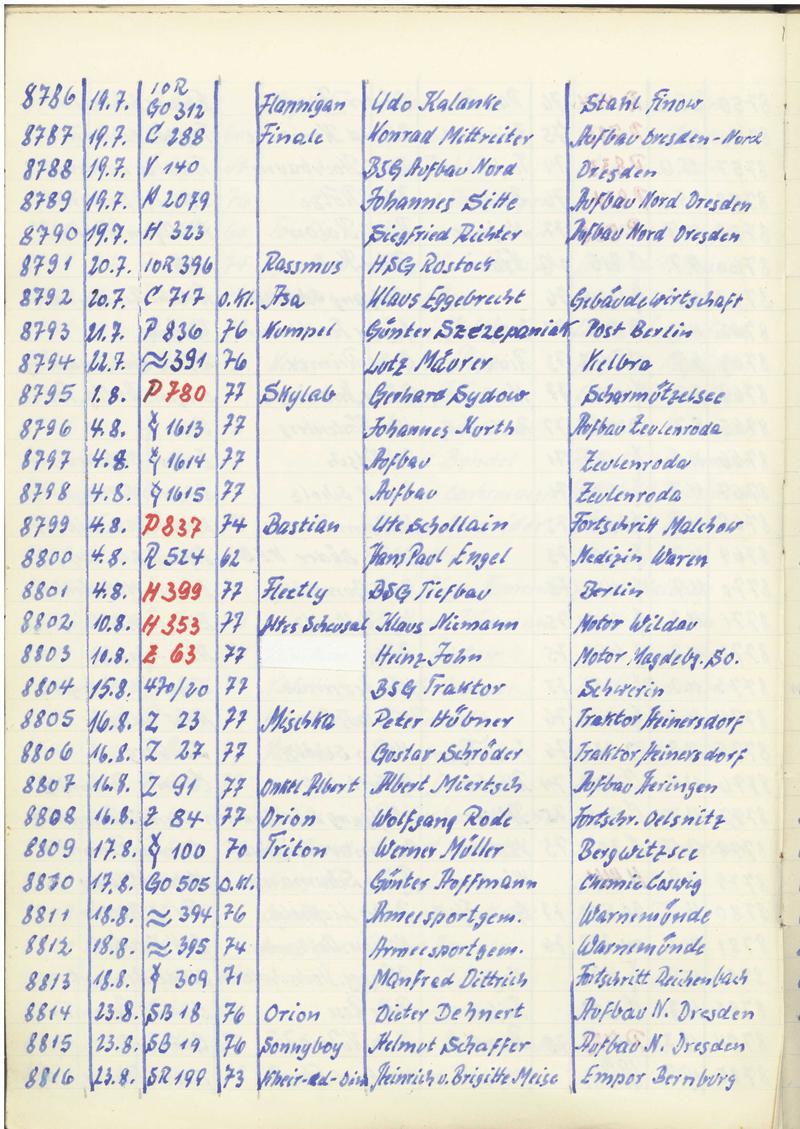 8786 19.7. 10R GO 312 Flannigan Udo Kalanke Stahl Finow
8787 19.7. C 288 Finale Konrad Mittreiter Aufbau Dresden-Nord
8788 19.7. V 140 BSG Aufbau Nord Dresden
8789 19.7. 2079 Johannes Sitte Aufbau Nord Dresden
8790 19.7. H 323 Siegfried Richter Aufbau Nord Dresden
8791 20.7. 10R 396 Rassmus HSG Rostock
8792 20.7. C 717 o.Kl. Isa Klaus Eggebrecht Gebäudewirtschaft
8793 21.7. P 836 76 Kumpel Günter Szczepaniak Post Berlin
8794 22.7. ≈ 391 76 Lutz Mäurer Kelbra
8795 1.8. P 780 77 Skylab Gerhard Sydow Scharmützelsee
8796 4.8. 1613 77 Johannes Kurth Aufbau Zeulenroda
8797 4.8. 1614 77 Aufbau Zeulenroda
8798 4.8. 1615 77 Aufbau Zeulenroda
8799 4.8. P 837 74 Bastian Ute Schollain Fortschritt Malchow
8800 4.8. R 524 62 Hans Paul Engel Medizin Waren
8801 4.8. H 399 77 Fleetly BSG Tiefbau Berlin
8802 10.8. H 353 77 Altes Scheusal Klaus Niemann Motor Wildau
8803 10.8. Z 63 77 Heinz John Motor Magdebg. SO.
8804 15.8. 470/20 77 BSG Traktor Schwerin
8805 16.8. Z 23 77 Mischka Peter Hübner Traktor Heinersdorf
8806 16.8. Z 27 77 Gustav Schröder Traktor Heinersdorf
8807 16.8. Z 91 77 Onkel Albert Albert Miertsch Aufbau Heringen
8808 16.8. Z 84 77 Orion Wolfgang Rode Fortschr. Oelsnitz
8809 17.8. 100 70 Triton Werner Müller Bergwitzsee
8810 17.8. GO 505 o.Kl. Günter Hoffmann Chemie Coswig
8811 18.8. ≈ 394 76 Armeesportgem. Warnemünde
8812 18.8. ≈ 395 74 Armeesportgem. Warnemünde
8813 18.8. 309 71 Manfred Dittrich Fortschritt Reichenbach
8814 23.8. SB 18 76 Orion Dieter Dehnert Aufbau N. Dresden
8815 23.8. SB 19 76 Sonnyboy Helmut Schaffer Aufbau N. Dresden
8816 23.8. SR 199 73 Heinrich u. Brigitte Meise Empor Bernburg